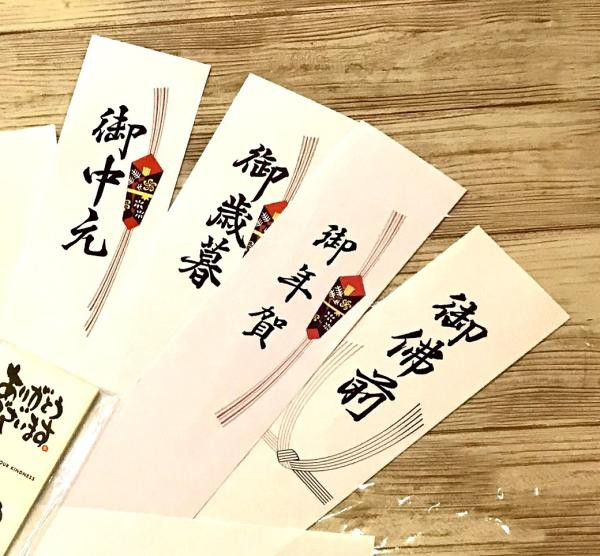 御中元
御歳暮
御年賀
御佛前
ありがとう
ございます。
OUR KINDNESS